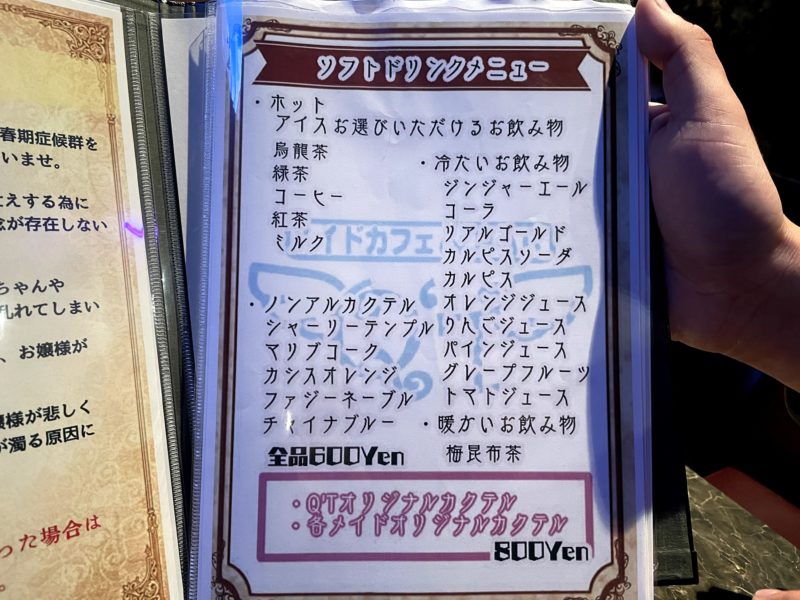 春期症候群を
いませ。
えする為に
念が存在しない
ちゃんや
乱れてしまい
、お嬢様が
嬢様が悲しく
が濁る原因に
った場合は
ソフトドリンクメニュー
・ホット
アイスお選びいただけるお飲み物
烏龍茶
緑茶
コーヒー
紅茶
ミルク
・ノンアルカクテル
シャーリーテンプル
マリブコーク
カシスオレンジ
ファジーネーブル
チャイナブルー
全品600Yen
・冷たいお飲み物
ジンジャーエール
コーラ
リアルゴールド
カルピスソーダ
カルピス
オレンジジュース
りんごジュース
パインジュース
グレープフルーツ
トマトジュース
・暖かいお飲み物
梅昆布茶
メイドカフェ
・QTオリジナルカクテル
・各メイドオリジナルカクテル
800Yen